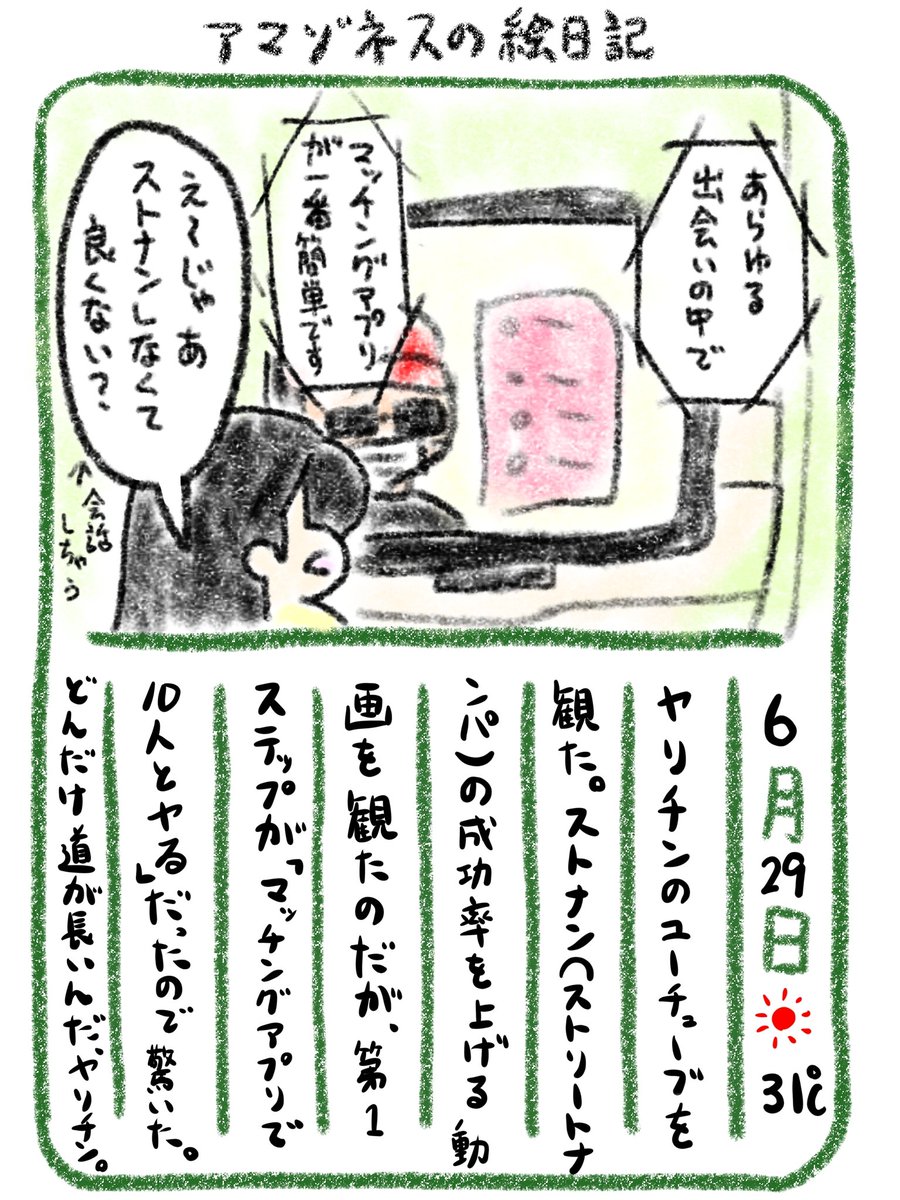 アマゾネスの絵日記
あらゆる
出会いの中で
マッチングアプリ
が一番簡単です
え〜じゃあ
ストナンしなくて
良くない?
↑会話
しちゃう
6月29日 31℃
ヤリチンのユーチューブを
観た。ストナン(ストリートナ
ンパ)の成功率を上げる動
画を観たのだが、第1
ステップが「マッチングアプリで
10人とヤる」だったので驚いた。
どんだけ道が長いんだ、ヤリチン。